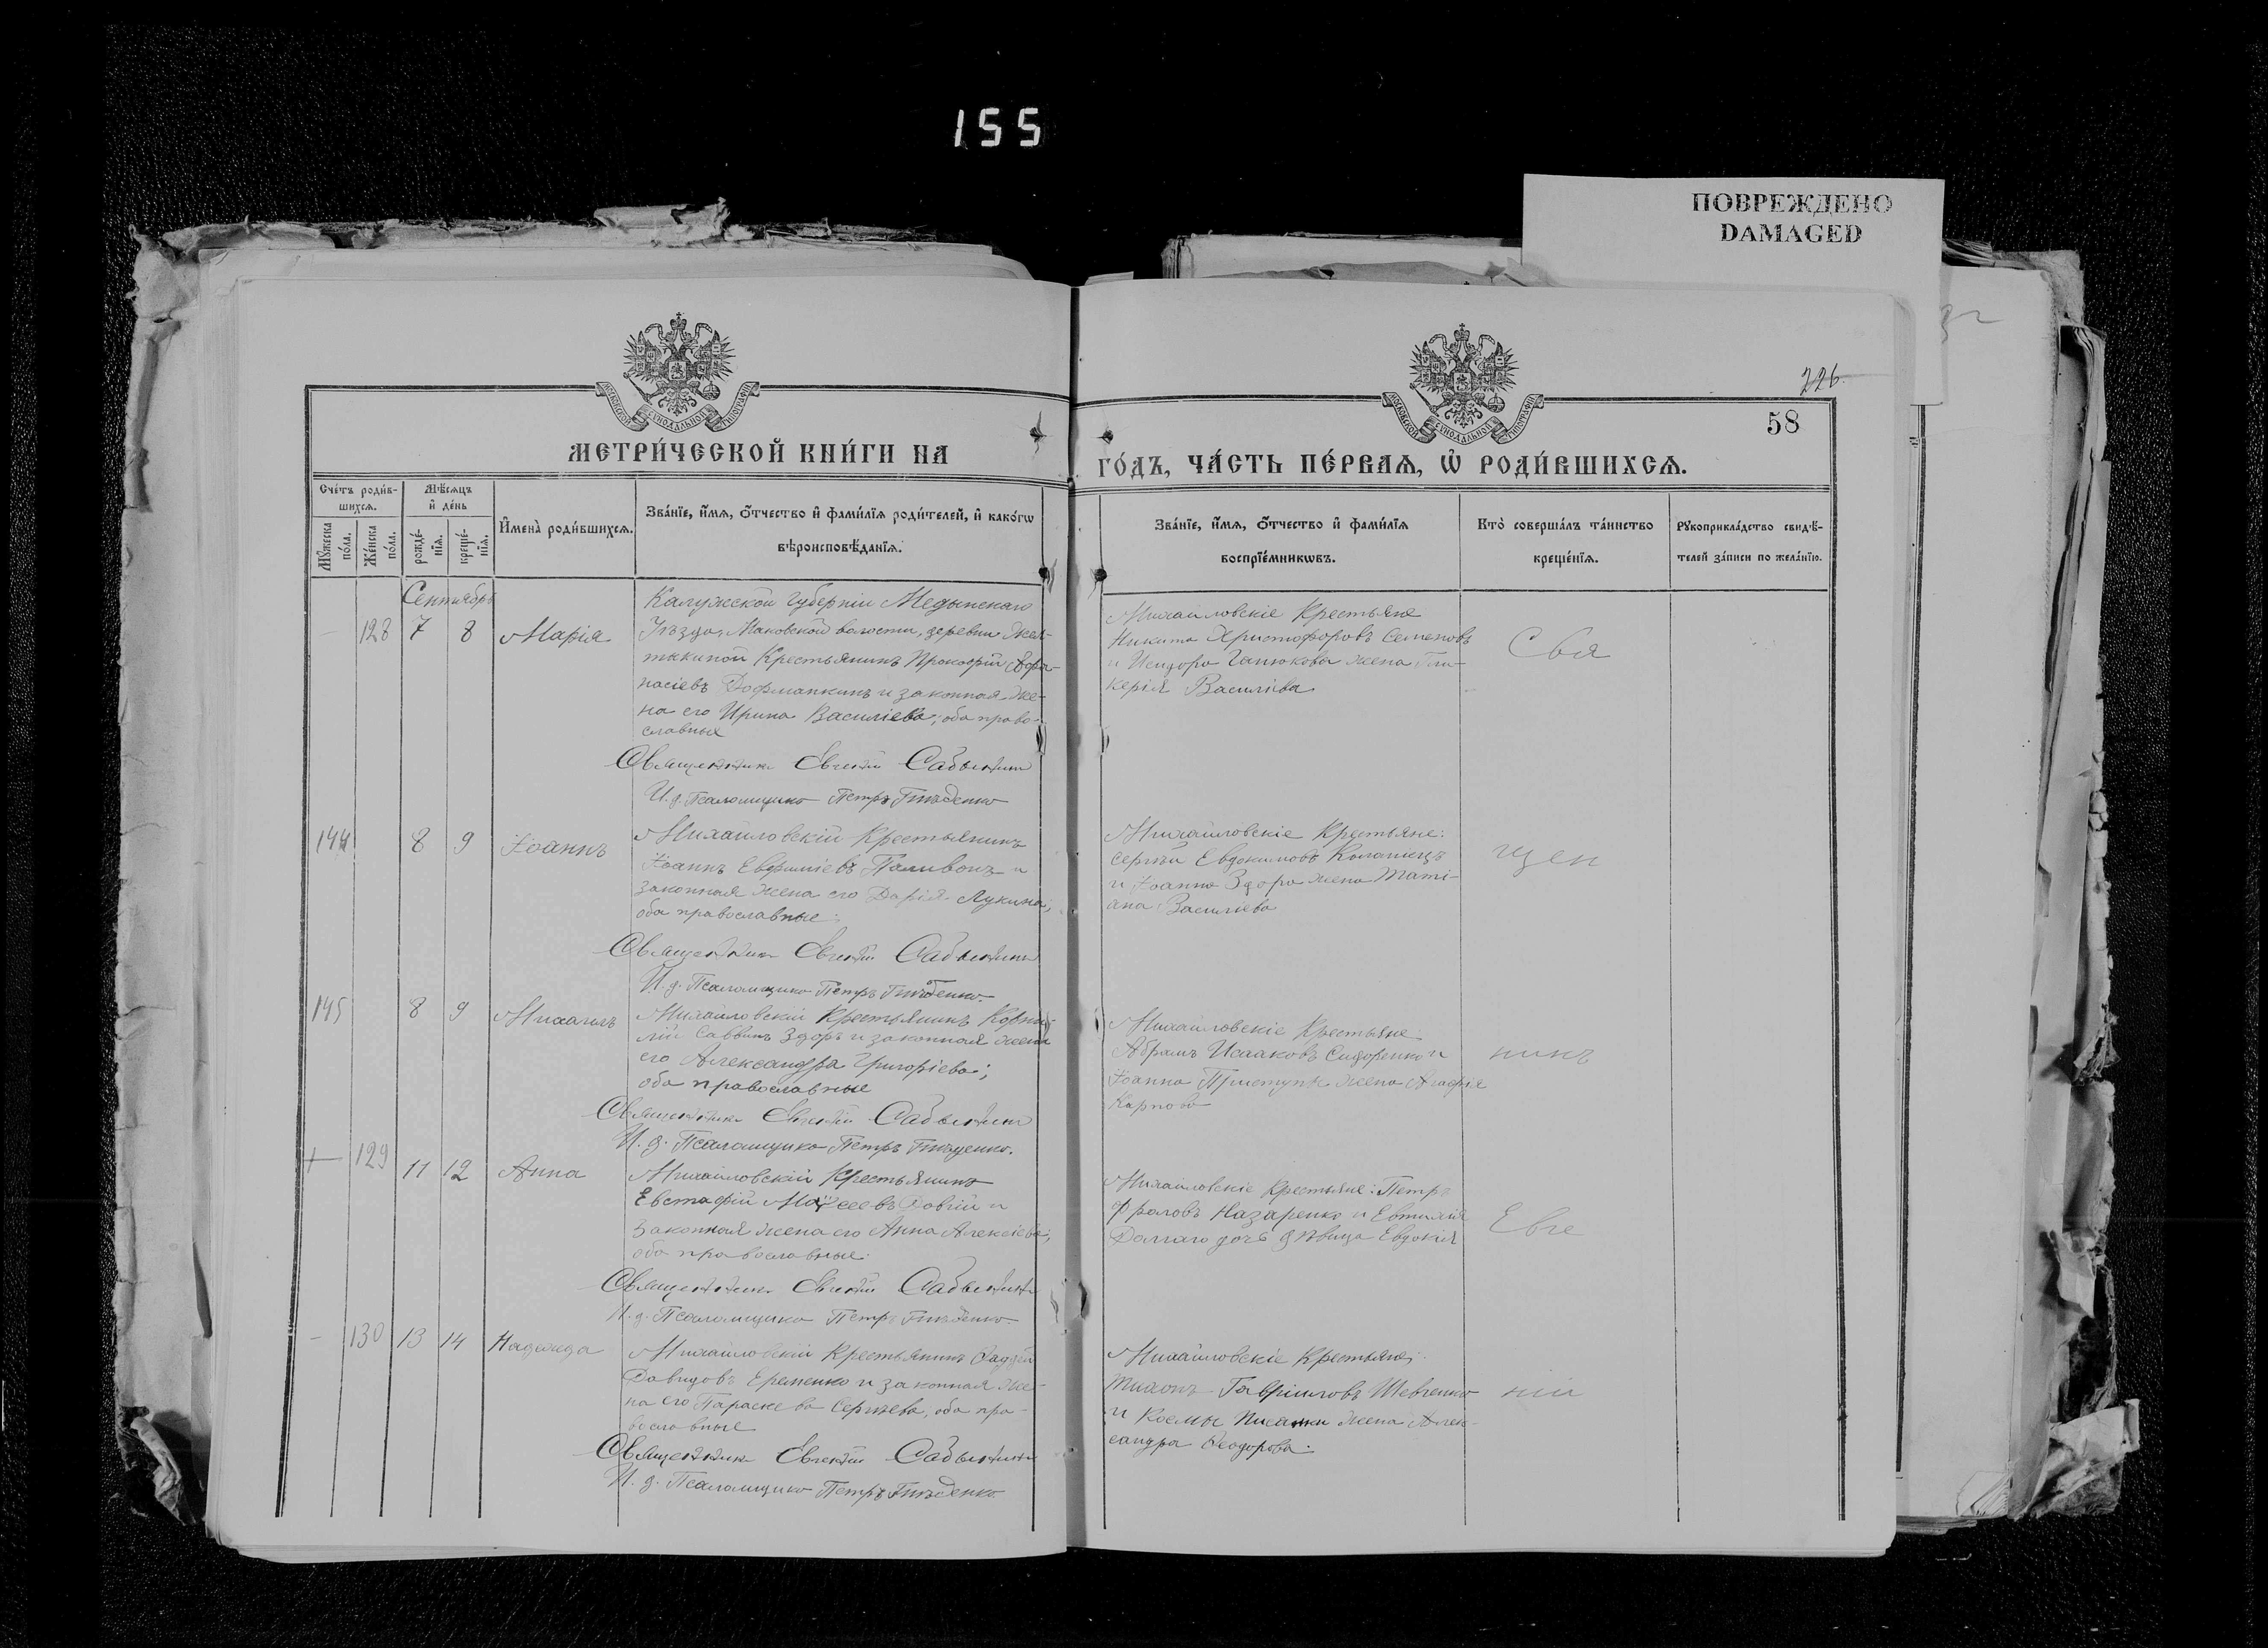 155
ПОВРЕЖДЕНО
DAMAGED
226.
58
МОСКОВСКОЙ СѴНОДАЛЬНОЙ ТИПОГРАФІИ
МОСКОВСКОЙ СѴНОДАЛЬНОЙ ТИПОГРАФІИ
МЕТРИ́ЧЕСКОЙ КНИ́ГИ НА
ГО́ДЪ, ЧА́СТЬ ПЕ́РВАѦ, Ѡ҆ РОДИ́ВШИХСѦ.
Сче́тъ роди́в-
шихсѧ.
Мꙋ́жеска
по́ла.
Же́нска
по́ла.
Мѣ́сѧцъ
и҆ де́нь
рожде́-
нїѧ.
креще́-
нїѧ.
И҆мена̀ роди́вшихсѧ.
Зва́нїе, и҆́мѧ, ѻ҆́тчество и҆ фами́лїѧ роди́телей, и҆ како́гѡ
вѣроисповѣ́данїѧ.
Зва́нїе, и҆́мѧ, ѻ҆́тчество и҆ фами́лїѧ
воспрїе́мникѡвъ.
Кто̀ соверша́лъ та́инство
креще́нїѧ.
Рꙋкоприкла́дство свидѣ́-
телей за́писи по жела́нїю.
Сентябрь
— 128 7 8 Марія
Калужской губерніи Медынскаго
Уѣзда, Маковской волости, деревни Жел-
тыкиной Крестьянинъ Прокофій Афа-
насіевъ и законная Же-
на его Ирина Василіева; оба право-
славные
Священникъ Евгеній Сабынинъ
И. д. Псаломщика Петръ Гнѣденко
Михайловскіе Крестьяне
Никита Христофоровъ Семеновъ
и Исидора жена Гли-
керія Василіева
Свя
144 8 9 Іоаннъ
Михайловскій Крестьянинъ
Іоаннъ Евфиміевъ Паливода и
законная жена его Дарія Лукина;
оба православные.
Священникъ Евгеній Сабынинъ
И. д. Псаломщика Петръ Гнѣденко.
Михайловскіе Крестьяне:
Сергѣй Евдокимовъ Коломіецъ
и Іоанна Здора жена Таті-
ана Василіева
щен
145 8 9 Михаилъ
Михайловскій Крестьянинъ Корни-
лій Саввинъ Здоръ и законная жена
его Александра Григоріева;
оба православные
Священникъ Евгеній Сабынинъ
И. д. Псаломщика Петръ Гнѣденко.
Михайловскіе Крестьяне:
Абрамъ Исааковъ Сидоренко и
Іоанна Приступы жена Агафія
Карпова
никъ
129 11 12 Анна
Михайловскій Крестьянинъ
Евстафій Моѵсеевъ Довгій и
Законная жена его Анна Алексіева;
оба православные.
Священникъ Евгеній Сабынинъ
И. д. Псаломщика Петръ Гнѣденко.
Михайловскіе Крестьяне: Петръ
Фроловъ Назаренко и Евтихія
Долгаго дочь дѣвица Евдокія
Евге
— 130 13 14 Надежда
Михайловскій Крестьянинъ Фаддей
Давидовъ Еременко и законная Же-
на его Параскева Сергѣева, оба пра-
вославные
Священникъ Евгеній Сабынинъ
И. д. Псаломщика Петръ Гнѣденко
Михайловскіе Крестьяне:
Тихонъ Гавриловъ Шевченко
и Космы жена Алек-
сандра Ѳеодорова.
ній